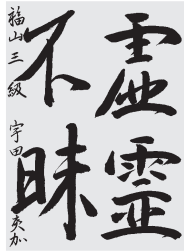 虚霊
不昧
福山三級 宇田奏加